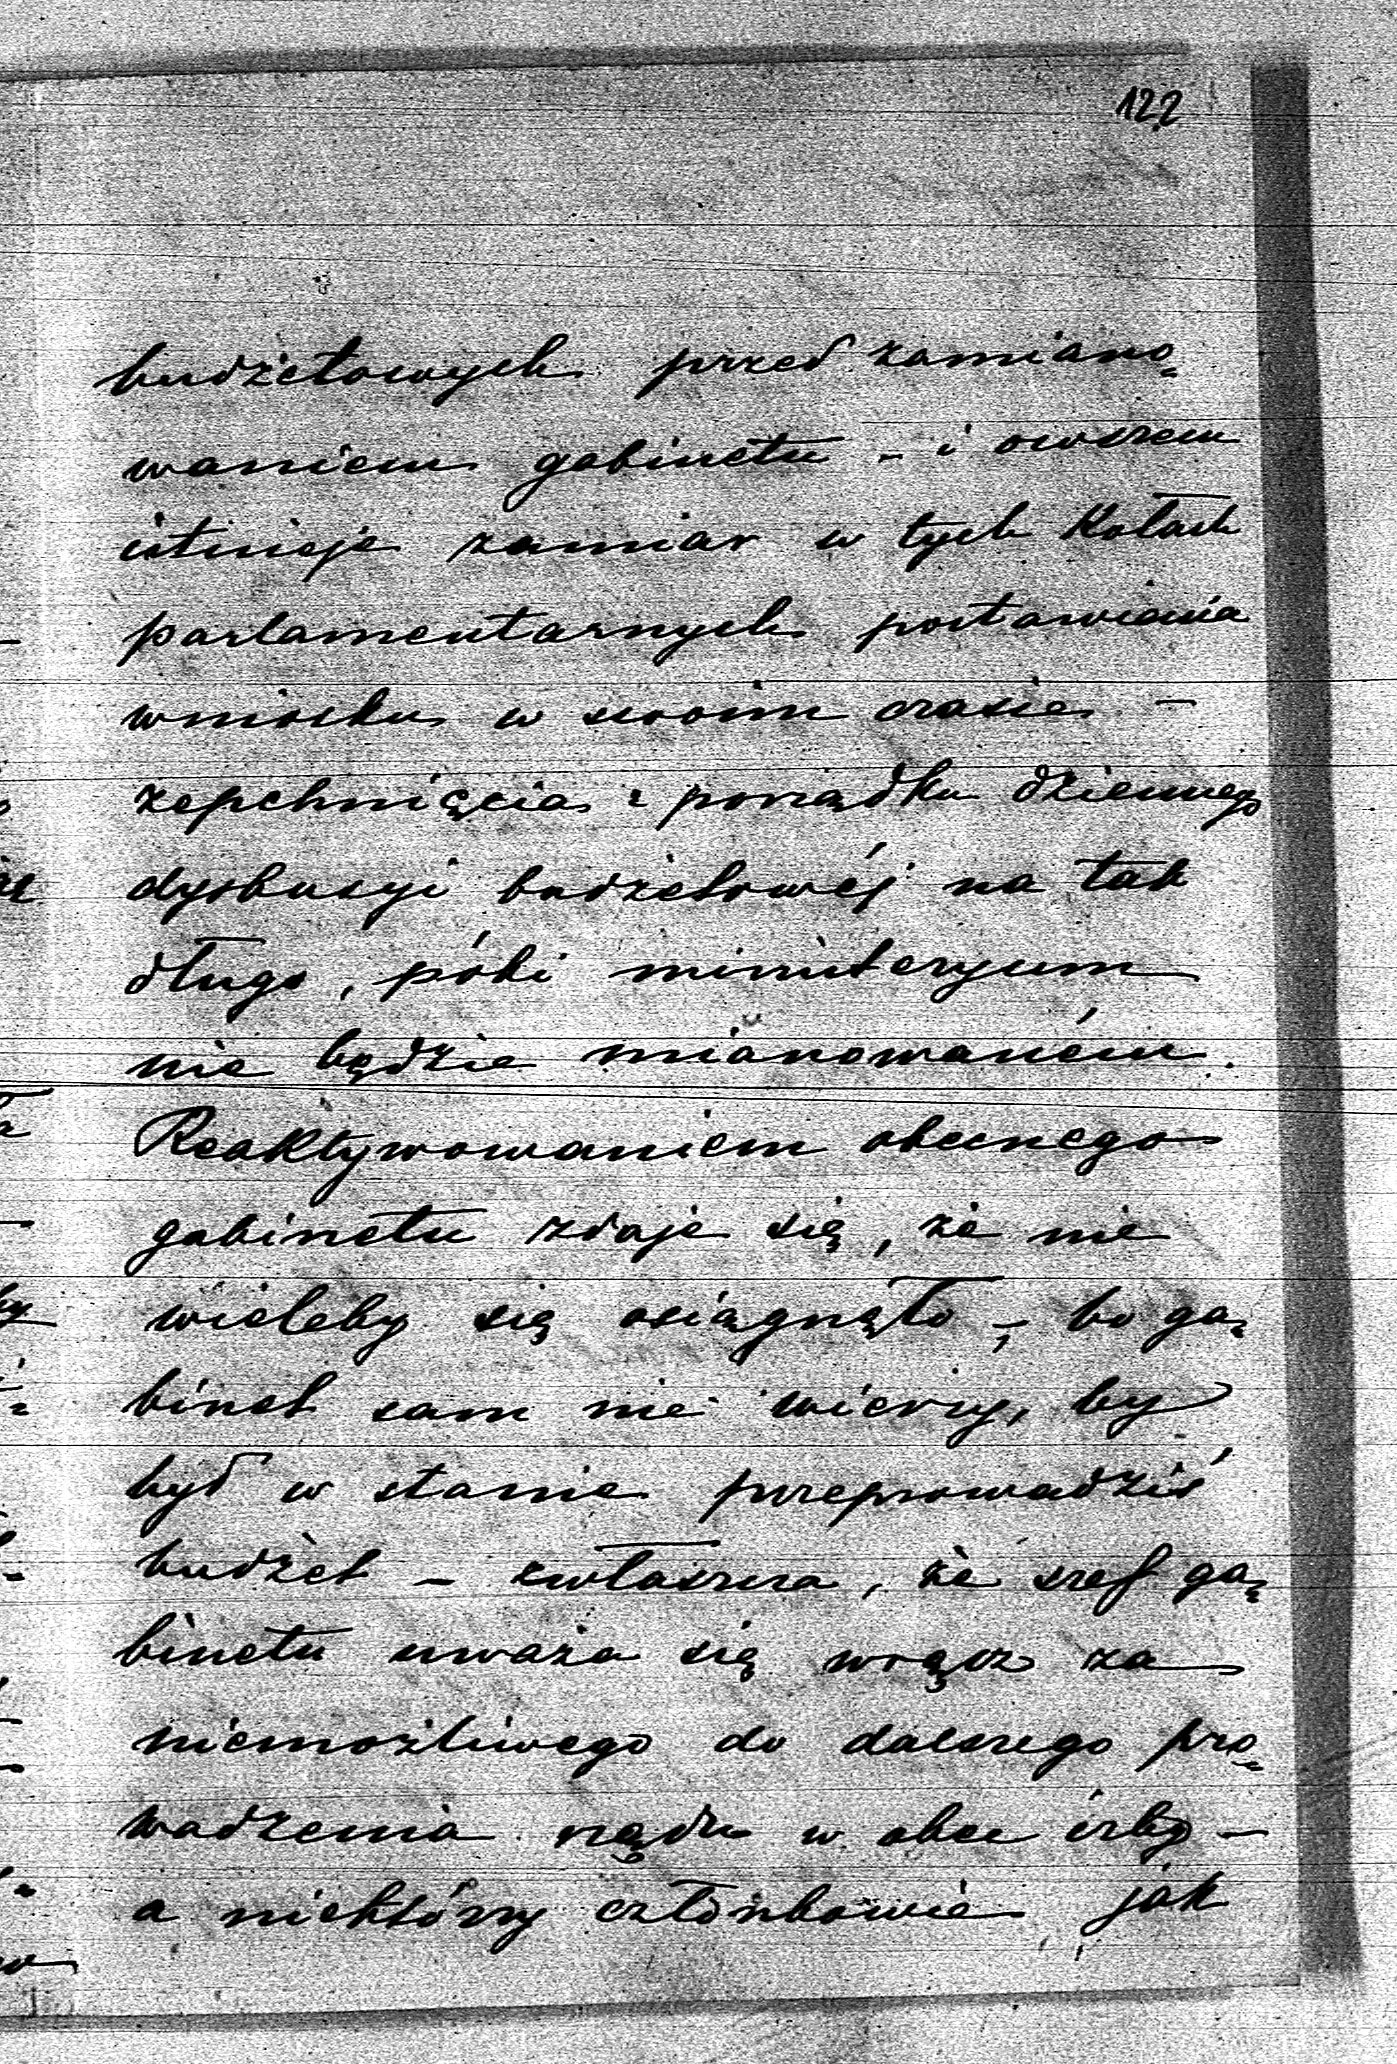 122
budżetowych przed zamiano-
waniem gabinetu - i owszem
istnieje zamiar w tych Kołach
parlamentarnych postawienia
wniosku w swoim czasie -
zepchnięcia z porządku dziennego
dyskusyi budżetowéj na tak
długo, póki ministeryum
nie będzie mianowaném.
Reaktywowaniem obecnego
gabinetu zdaje się, że nie
wieleby się osiągnęło -, bo ga-
binet sam nie wierzy, by
był w stanie przeprowadzić
budżet - zwłaszcza, że szef ga-
binetu uważa się wręcz za
niemożliwego do dalszego pro-
wadzenia rządu w obec izby -
a niektórzy członkowie jak